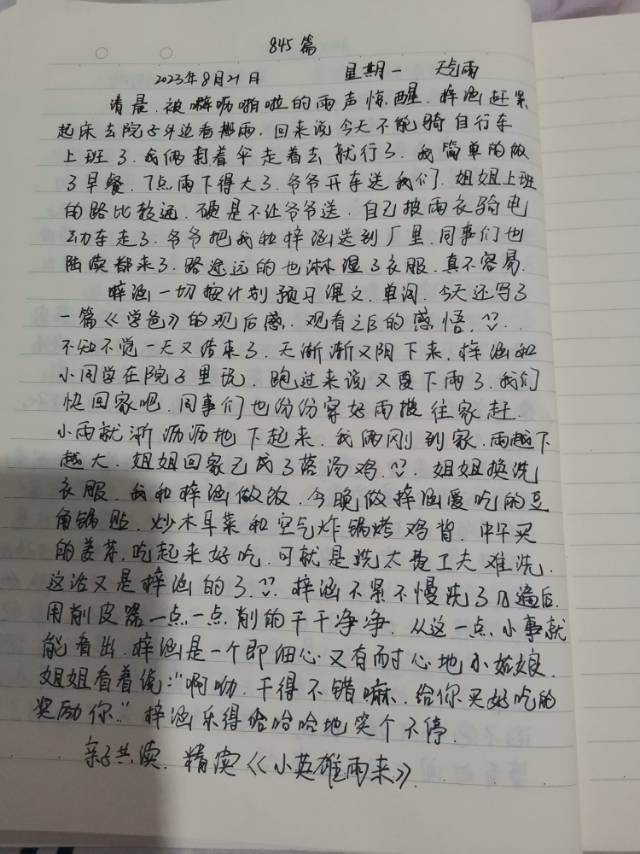 845篇
2023年8月21日 星期一 天气雨
清晨.被噼呖啪啦的雨声惊醒.梓涵赶紧
起床去院子外边看搬雨.回来说今天不能骑自行车
上班了.我俩打着伞走着去就行了.我简单的做
了早餐.7点雨下得大了.爷爷开车送我们.姐姐上班
的路比较远.硬是不让爷爷送.自己披雨衣骑电
动车走了.爷爷把我和梓涵送到厂里.同事们也
陆续都来了.路途远的也淋湿了衣服.真不容易.
梓涵一切按计划预习课文.单词.今天还写了
一篇《学爸》的观后感.观看之后的感悟.
不知不觉一天又结束了.天渐渐又阴下来.梓涵和
小同学在院子里玩.跑过来说又要下雨了.我们
快回家吧.同事们也份份穿好雨披往家赶.
小雨就淅沥沥地下起来.我俩刚到家.雨越下
越大.姐姐回家已成了落汤鸡.姐姐换洗
衣服.我和梓涵做饭.今晚做梓涵爱吃的豆
角锅贴.炒木耳菜和空气炸锅烤鸡背.中午买
的姜菜.吃起来好吃.可就是洗太费工夫难洗.
这活又是梓涵的了.梓涵不紧不慢洗了几遍后.
用削皮器一点一点削的干干净净.从这一点小事就
能看出.梓涵是一个即细心又有耐心地小姑娘.
姐姐看着说:“啊呦.干得不错嘛.给你买好吃的
奖励你.”梓涵乐得哈哈哈地笑个不停.
亲子共读.精读《小英雄雨来》.